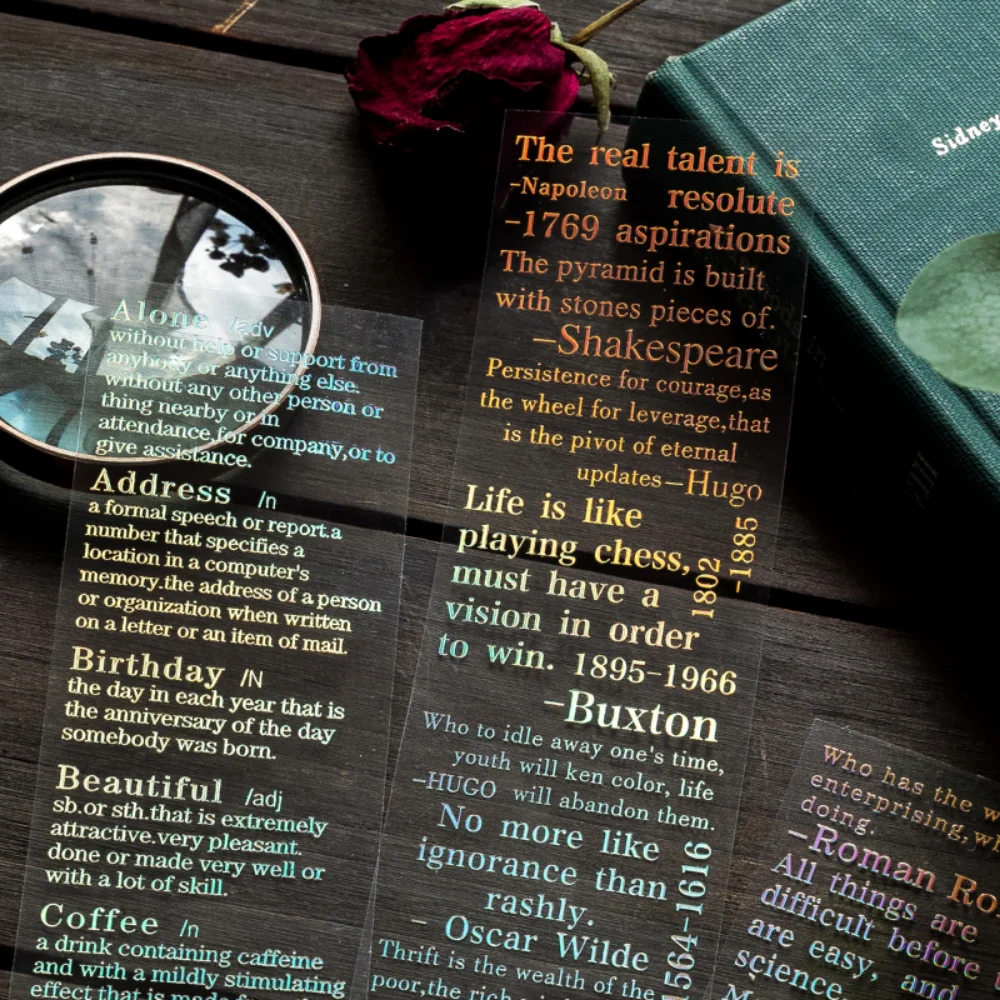 Sidney
Alone /adv
without help or support from
anybody or anything else.
without any other person or
thing nearby or in
attendance,for company,or to
give assistance.
Address /n
a formal speech or report.a
number that specifies a
location in a computer's
memory.the address of a person
or organization when written
on a letter or an item of mail.
Birthday /N
the day in each year that is
the anniversary of the day
somebody was born.
Beautiful /adj
sb.or sth.that is extremely
attractive.very pleasant.
done or made very well or
with a lot of skill.
Coffee /n
a drink containing caffeine
and with a mildly stimulating
effect that is made
The real talent is
-Napoleon resolute
-1769 aspirations
The pyramid is built
with stones pieces of.
-Shakespeare
Persistence for courage,as
the wheel for leverage,that
is the pivot of eternal
updates-Hugo
1802
-1885
Life is like
playing chess,
must have a
vision in order
to win. 1895-1966
-Buxton
Who to idle away one's time,
youth will ken color, life
-HUGO will abandon them.
No more like
ignorance than
rashly.
- Oscar Wilde
1564-1616
Thrift is the wealth of the
poor,the rich
Who has the
enterprising,
doing.
-Roman Ro
All things are
difficult before
are easy, and
science